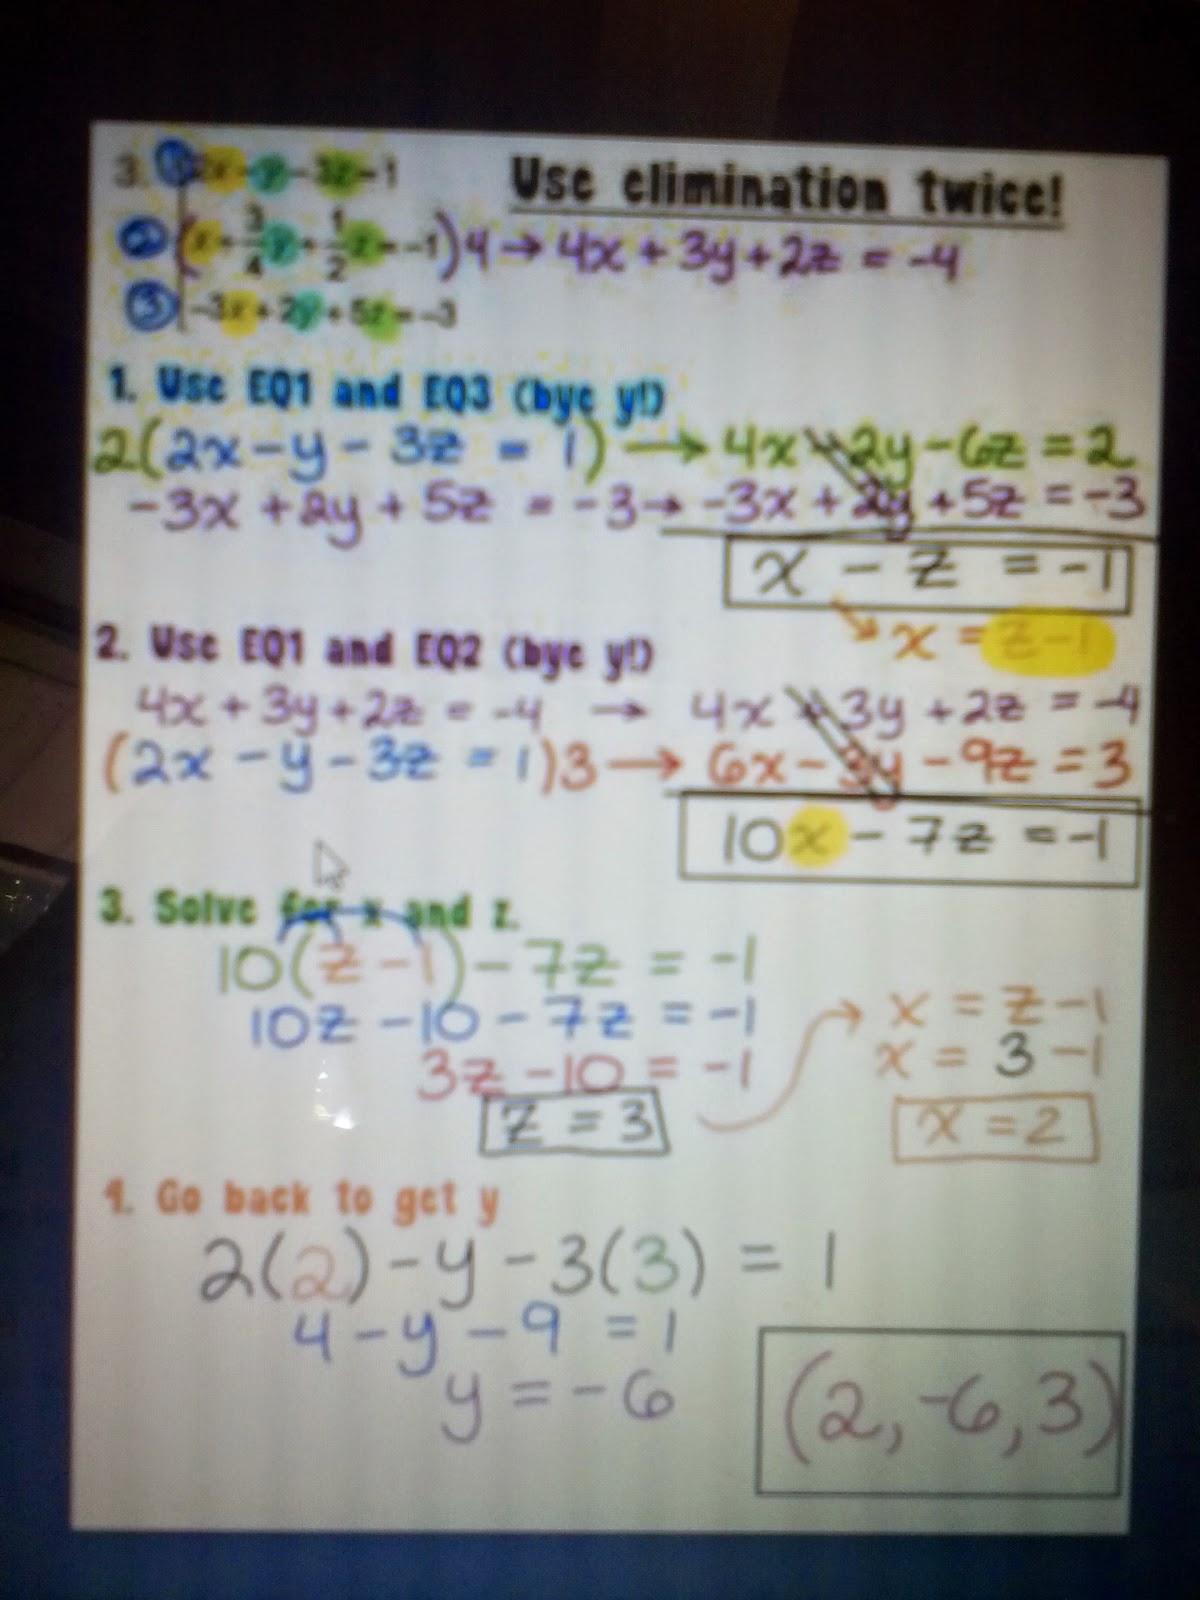 3. ① 2x-y-3z=1 Use elimination twice!
② (x+3/4y+1/2z=-1)4→4x+3y+2z=-4
③ -3x+2y+5z=-3
1. Use EQ1 and EQ3 (bye y!)
2(2x-y-3z=1)→4x-2y-6z=2
-3x+2y+5z=-3→-3x+2y+5z=-3
x-z=-1
x=z-1
2. Use EQ1 and EQ2 (bye y!)
4x+3y+2z=-4→4x+3y+2z=-4
(2x-y-3z=1)3→6x-3y-9z=3
10x-7z=-1
3. Solve for x and z.
10(z-1)-7z=-1
10z-10-7z=-1 → x=z-1
3z-10=-1 x=3-1
z=3 x=2
4. Go back to get y
2(2)-y-3(3)=1
4-y-9=1
y=-6
(2,-6,3)